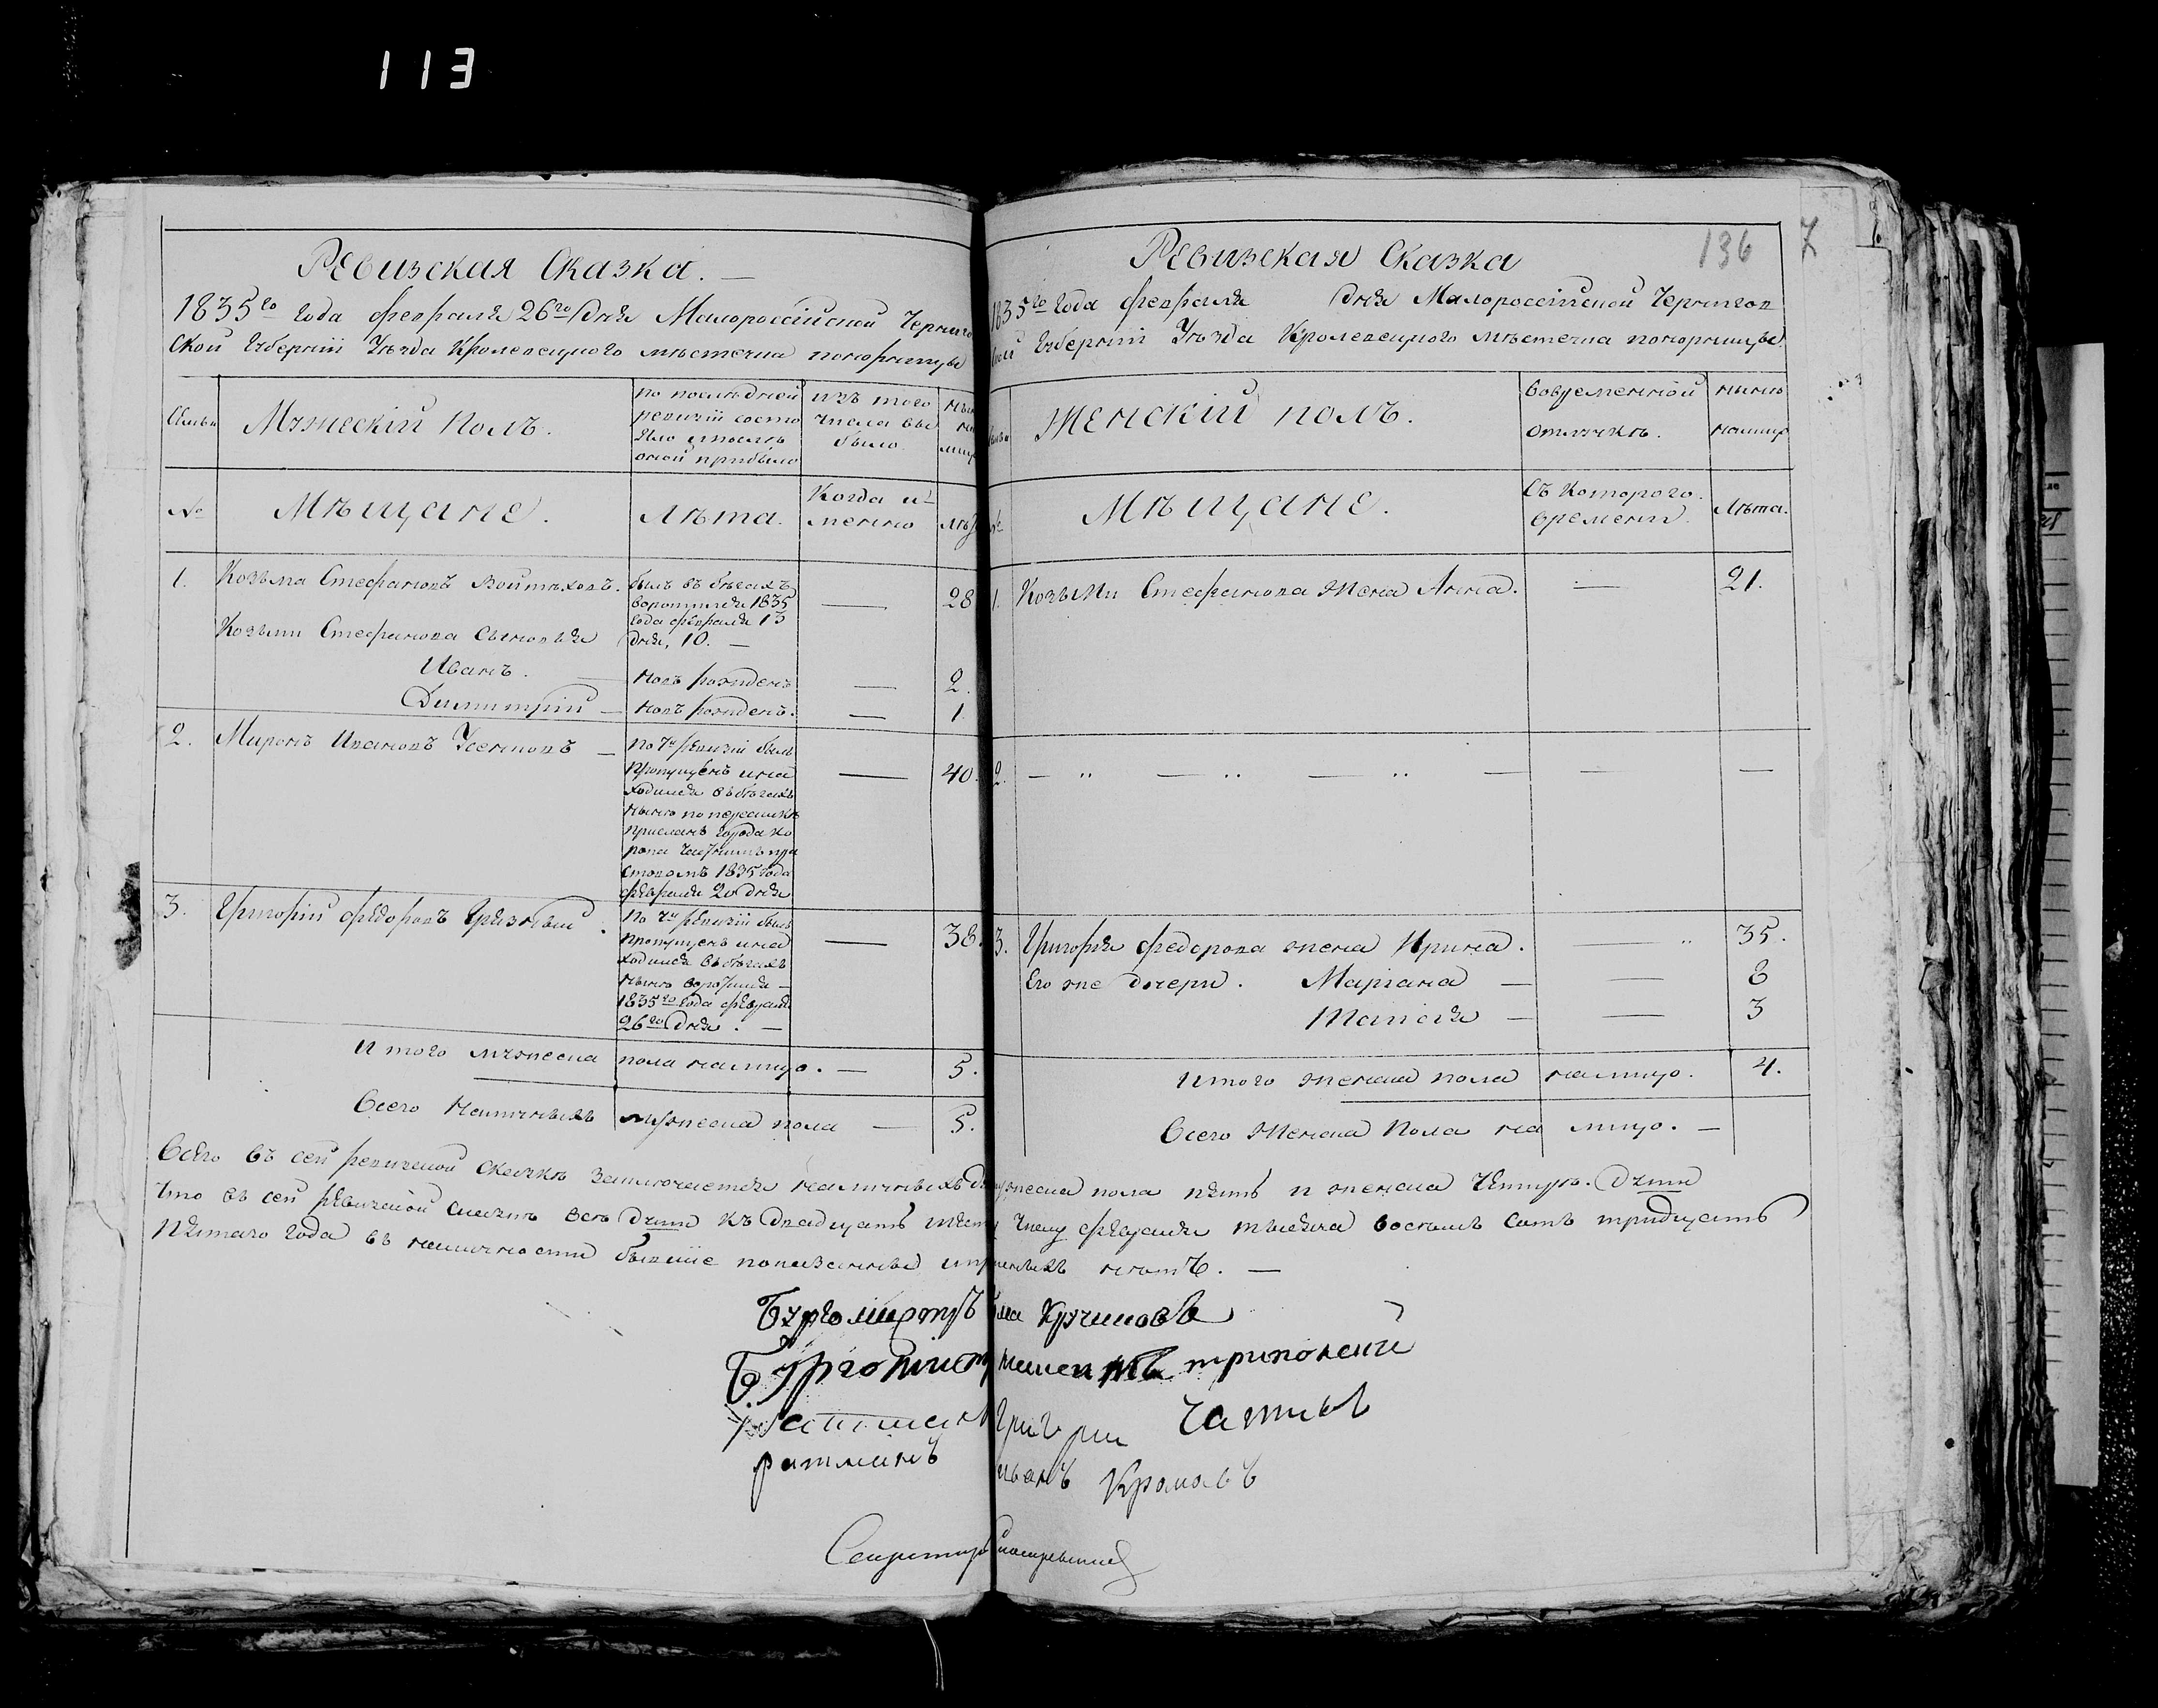 113
Ревизская Сказка. —
1835го года февраля 26го дня Малороссийской Черниго
ской Губернии Уѣзда Кролевецкого мѣстечка понорницы
Мужескiй Полъ.
по послѣдней
ревизiи состо
яло и послѣ
оной прибыло
изъ того
числа вы
было
№
Мѣщане.
Лѣта.
Когда и
менно
1.
Козьма Стефановъ Войтѣховъ.
былъ въ бѣгахъ
воротился 1835
года февраля 13
дня, 10. —
—
28
Козьмы Стефанова сыновья
Иванъ.
новъ рожденъ
—
2.
Димитрiй —
новъ рожденъ.
—
1
2.
Миронъ Ивановъ —
по 7й ревизiи былъ
пропущенъ и на
ходился въ бѣгахъ
нынѣ по пересылкѣ
присланъ города Ко
ропа
1835 года
февраля 20 дня
—
40.
3.
Григорiй Федоровъ Грязный.
по 7й ревизiи былъ
пропущенъ и на
ходился въ бѣгахъ
нынѣ воротился —
1835го года февраля
26го дня. —
—
38.
Итого мужеска пола налицо. —
5.
Всего наличныхъ мужеска пола —
5.
136
7
Ревизская Сказка
1835го года февраля дня Малороссiйской Чернигов
ской Губернiи Уѣзда Кролевецкого мѣстечка понорницы.
Женскiй полъ.
Вовременной
отлучкѣ.
нынѣ
налицо
№
Мѣщане.
Съ которого
времени.
Лѣта.
1.
Козьмы Стефанова жена Анна.
—
21.
2.
— „ — „ — „ —
—
—
3.
Григорiя Федорова жена Ирина.
—
35.
Его же дочери. Марiана —
—
8
Таисiя —
—
3
Итого женска пола налицо.
4.
Всего женска пола на лицо. —
Всего въ сей ревизской сказкѣ заключается наличныхъ мужеска пола пять и женска четыре. души
Что въ сей ревизской сказкѣ всѣ души къ двадцать шесто числу февраля тысяча восемь сотъ тридцать
пятаго года въ наличности бывшiе показанны нѣтъ. —
Бургомистръ
Бургомист
ратманъ
ратманъ Иванъ
Секретарь